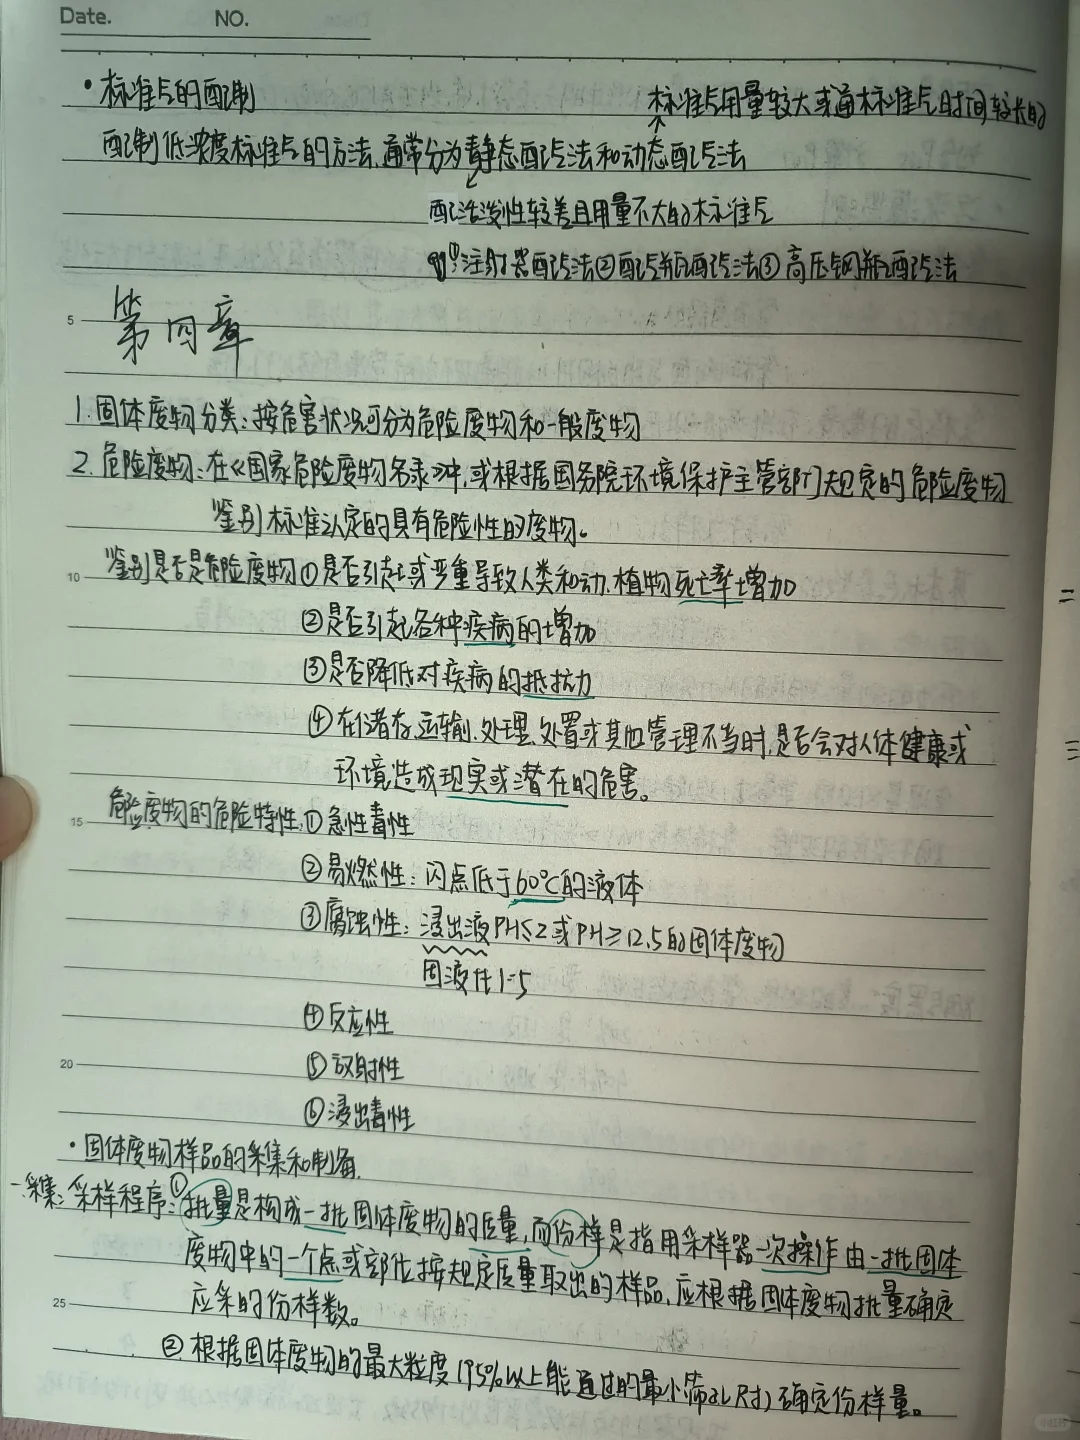 Date. NO.
·标准气的配制
标准气用量较大或通标准气时间较长的
配制低浓度标准气的方法,通常分为静态配气法和动态配气法
配活泼性较差且用量不大的标准气
①注射器配气法②配气瓶配气法③高压钢瓶配气法
5
第四章
1.固体废物分类:按危害状况可分为危险废物和一般废物
2.危险废物:在《国家危险废物名录》中,或根据国务院环境保护主管部门规定的危险废物
鉴别标准认定的具有危险性的废物。
10 鉴别是否是危险废物①是否引起或严重导致人类和动、植物死亡率增加
②是否引起各种疾病的增加
③是否降低对疾病的抵抗力
④在储存、运输、处理、处置或其他管理不当时,是否会对人体健康或
环境造成现实或潜在的危害。
15 危险废物的危险特性:①急性毒性
②易燃性:闪点低于60℃的液体
③腐蚀性:浸出液PH≤2或PH≥12.5的固体废物
固液比1:5
④反应性
20 ⑤放射性
⑥浸出毒性
·固体废物样品的采集和制备.
一.采集:采样程序:①批量是构成一批固体废物的质量,而份样是指用采样器一次操作由一批固体
废物中的一个点或部位按规定质量取出的样品,应根据固体废物批量确定
25 应采的份样数。
②根据固体废物的最大粒度(95%以上能通过的最小筛孔尺寸)确定份样量。
小红书